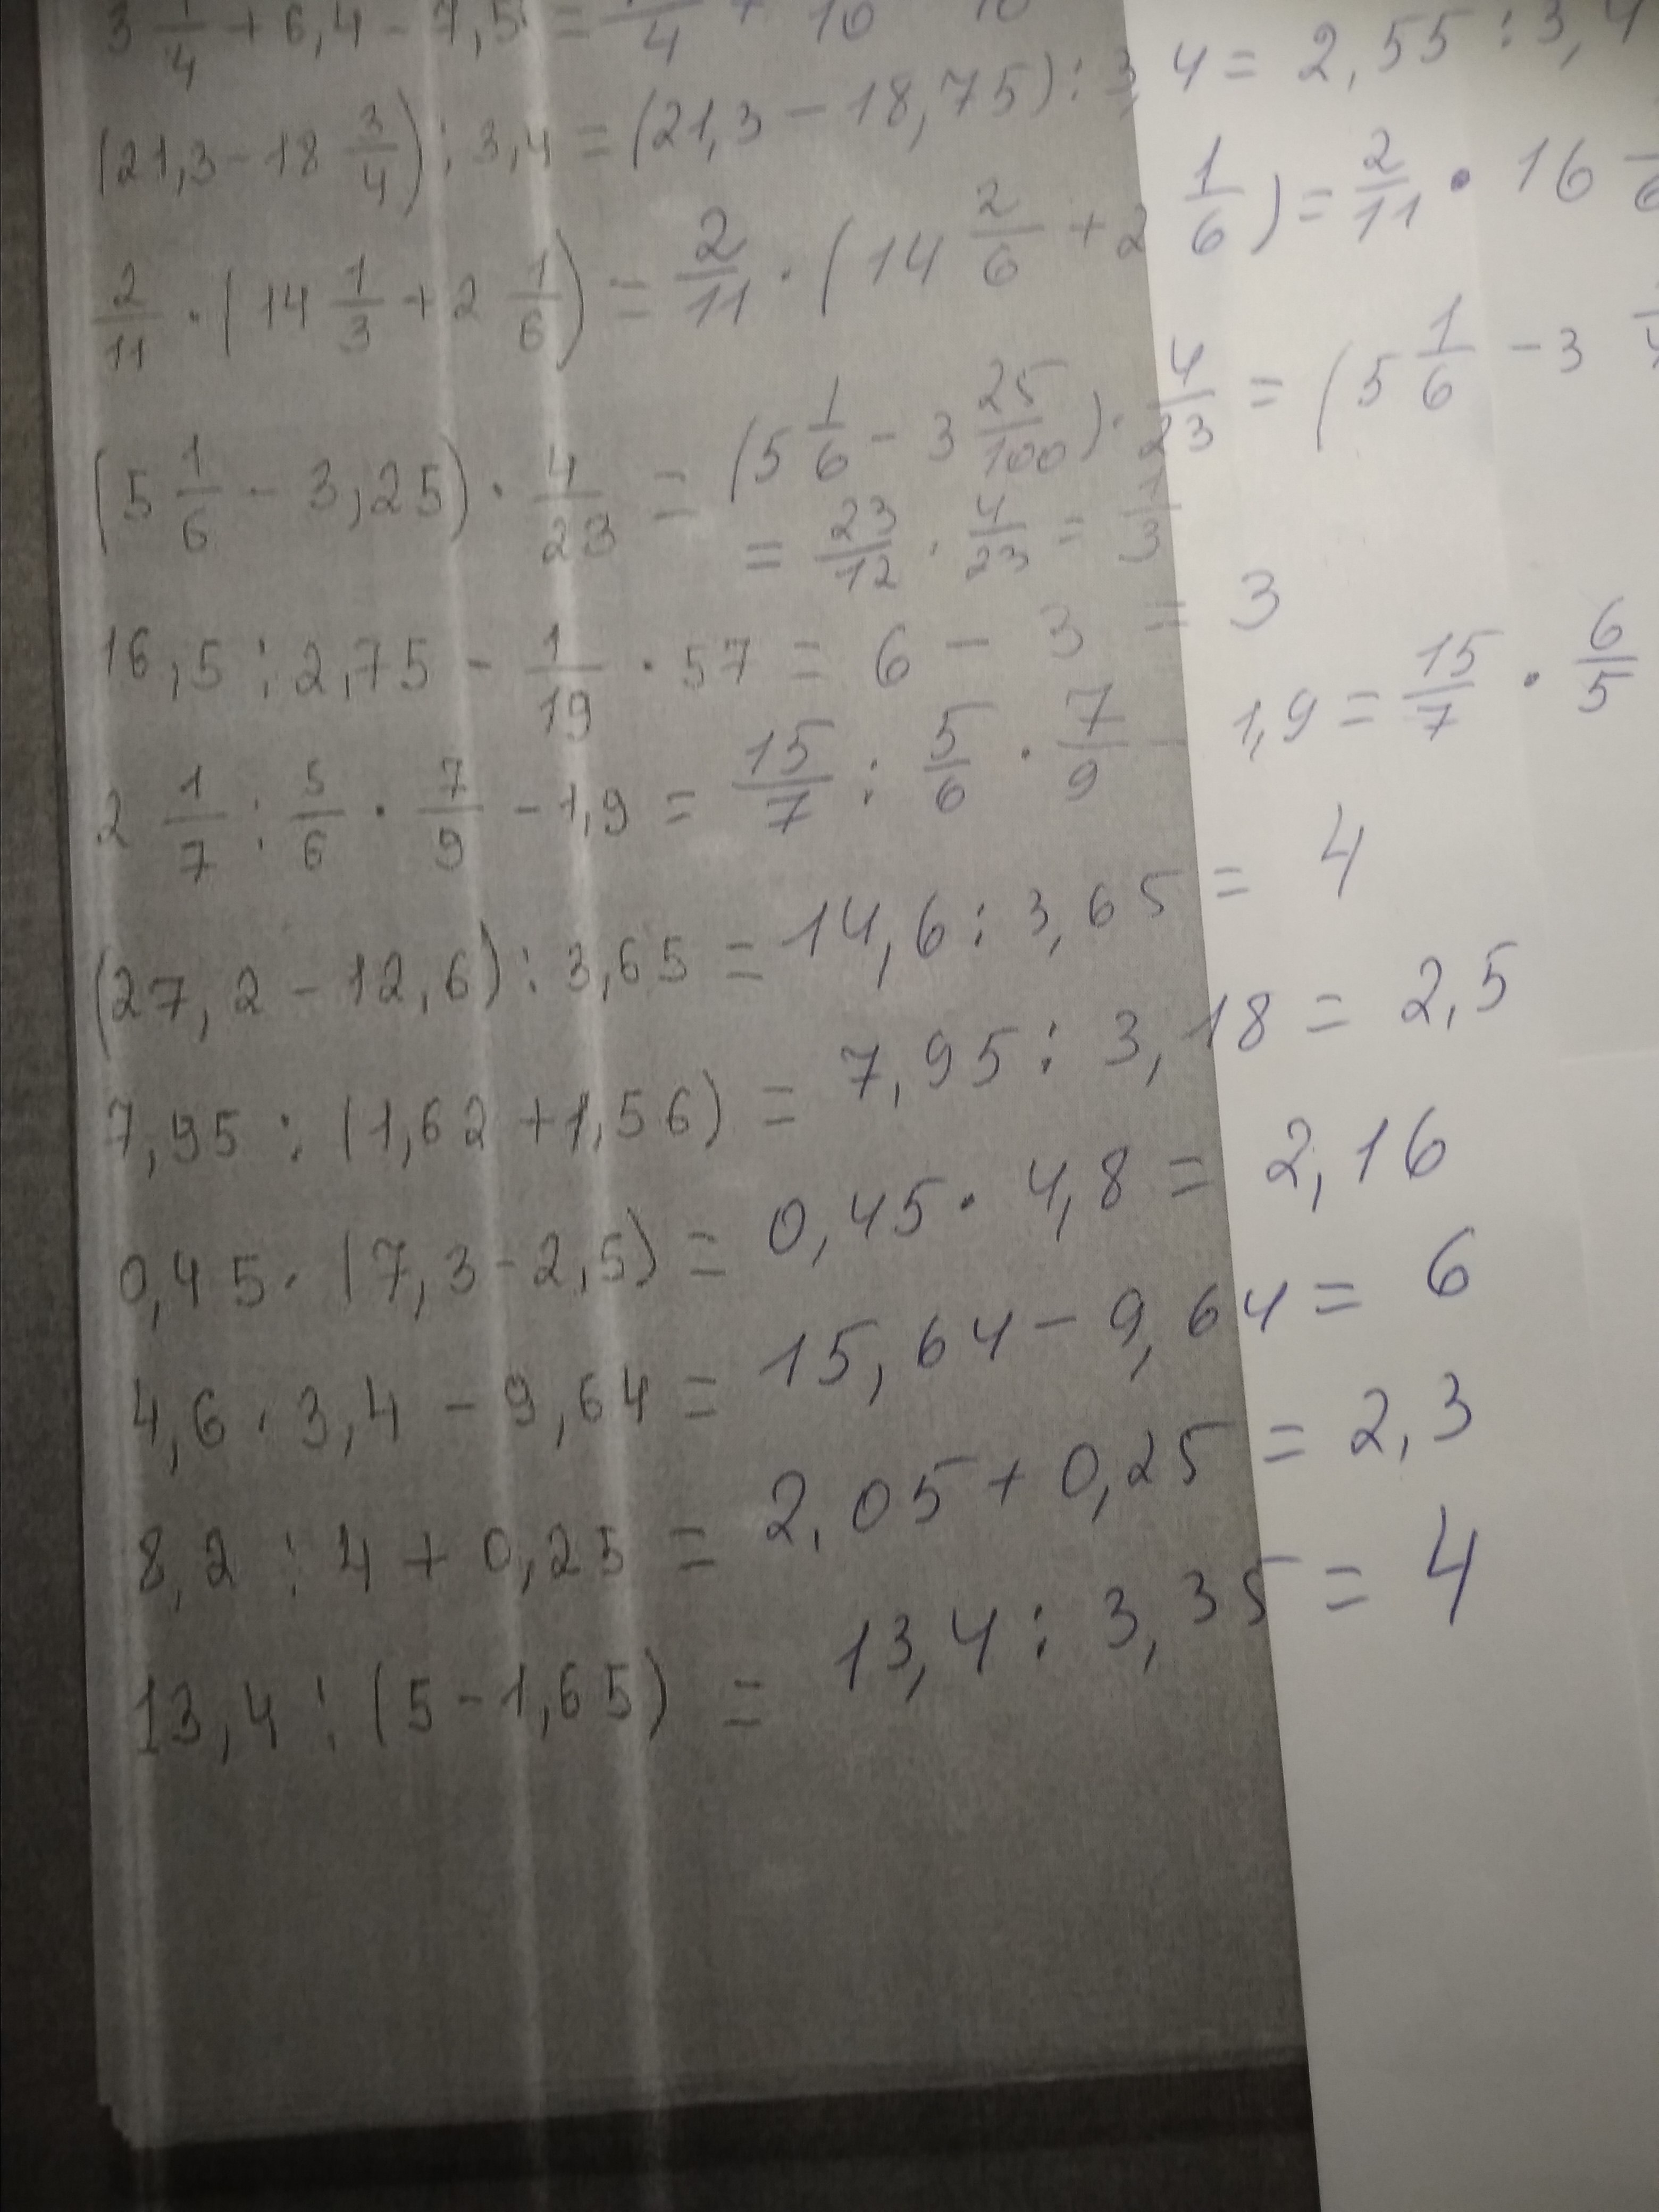 3 1/4 + 6,4 - 7,5 = /4 + 10 10
(21,3 - 18 3/4) : 3,4 = (21,3 - 18,75) : 3,4 = 2,55 : 3,4
2/11 · (14 1/3 + 2 1/6) = 2/11 · (14 2/6 + 2 1/6) = 2/11 · 16
(5 1/6 - 3,25) · 4/23 = (5 1/6 - 3 25/100) · 4/23 = (5 1/6 - 3
= 23/12 · 4/23 = 1/3
16,5 : 2,75 - 1/19 · 57 = 6 - 3 = 3
2 1/7 : 5/6 · 7/9 - 1,9 = 15/7 : 5/6 · 7/9 - 1,9 = 15/7 · 6/5
(27,2 - 12,6) : 3,65 = 14,6 : 3,65 = 4
7,95 : (1,62 + 1,56) = 7,95 : 3,18 = 2,5
0,45 · (7,3 - 2,5) = 0,45 · 4,8 = 2,16
4,6 · 3,4 - 9,64 = 15,64 - 9,64 = 6
8,2 : 4 + 0,25 = 2,05 + 0,25 = 2,3
13,4 : (5 - 1,65) = 13,4 : 3,35 = 4